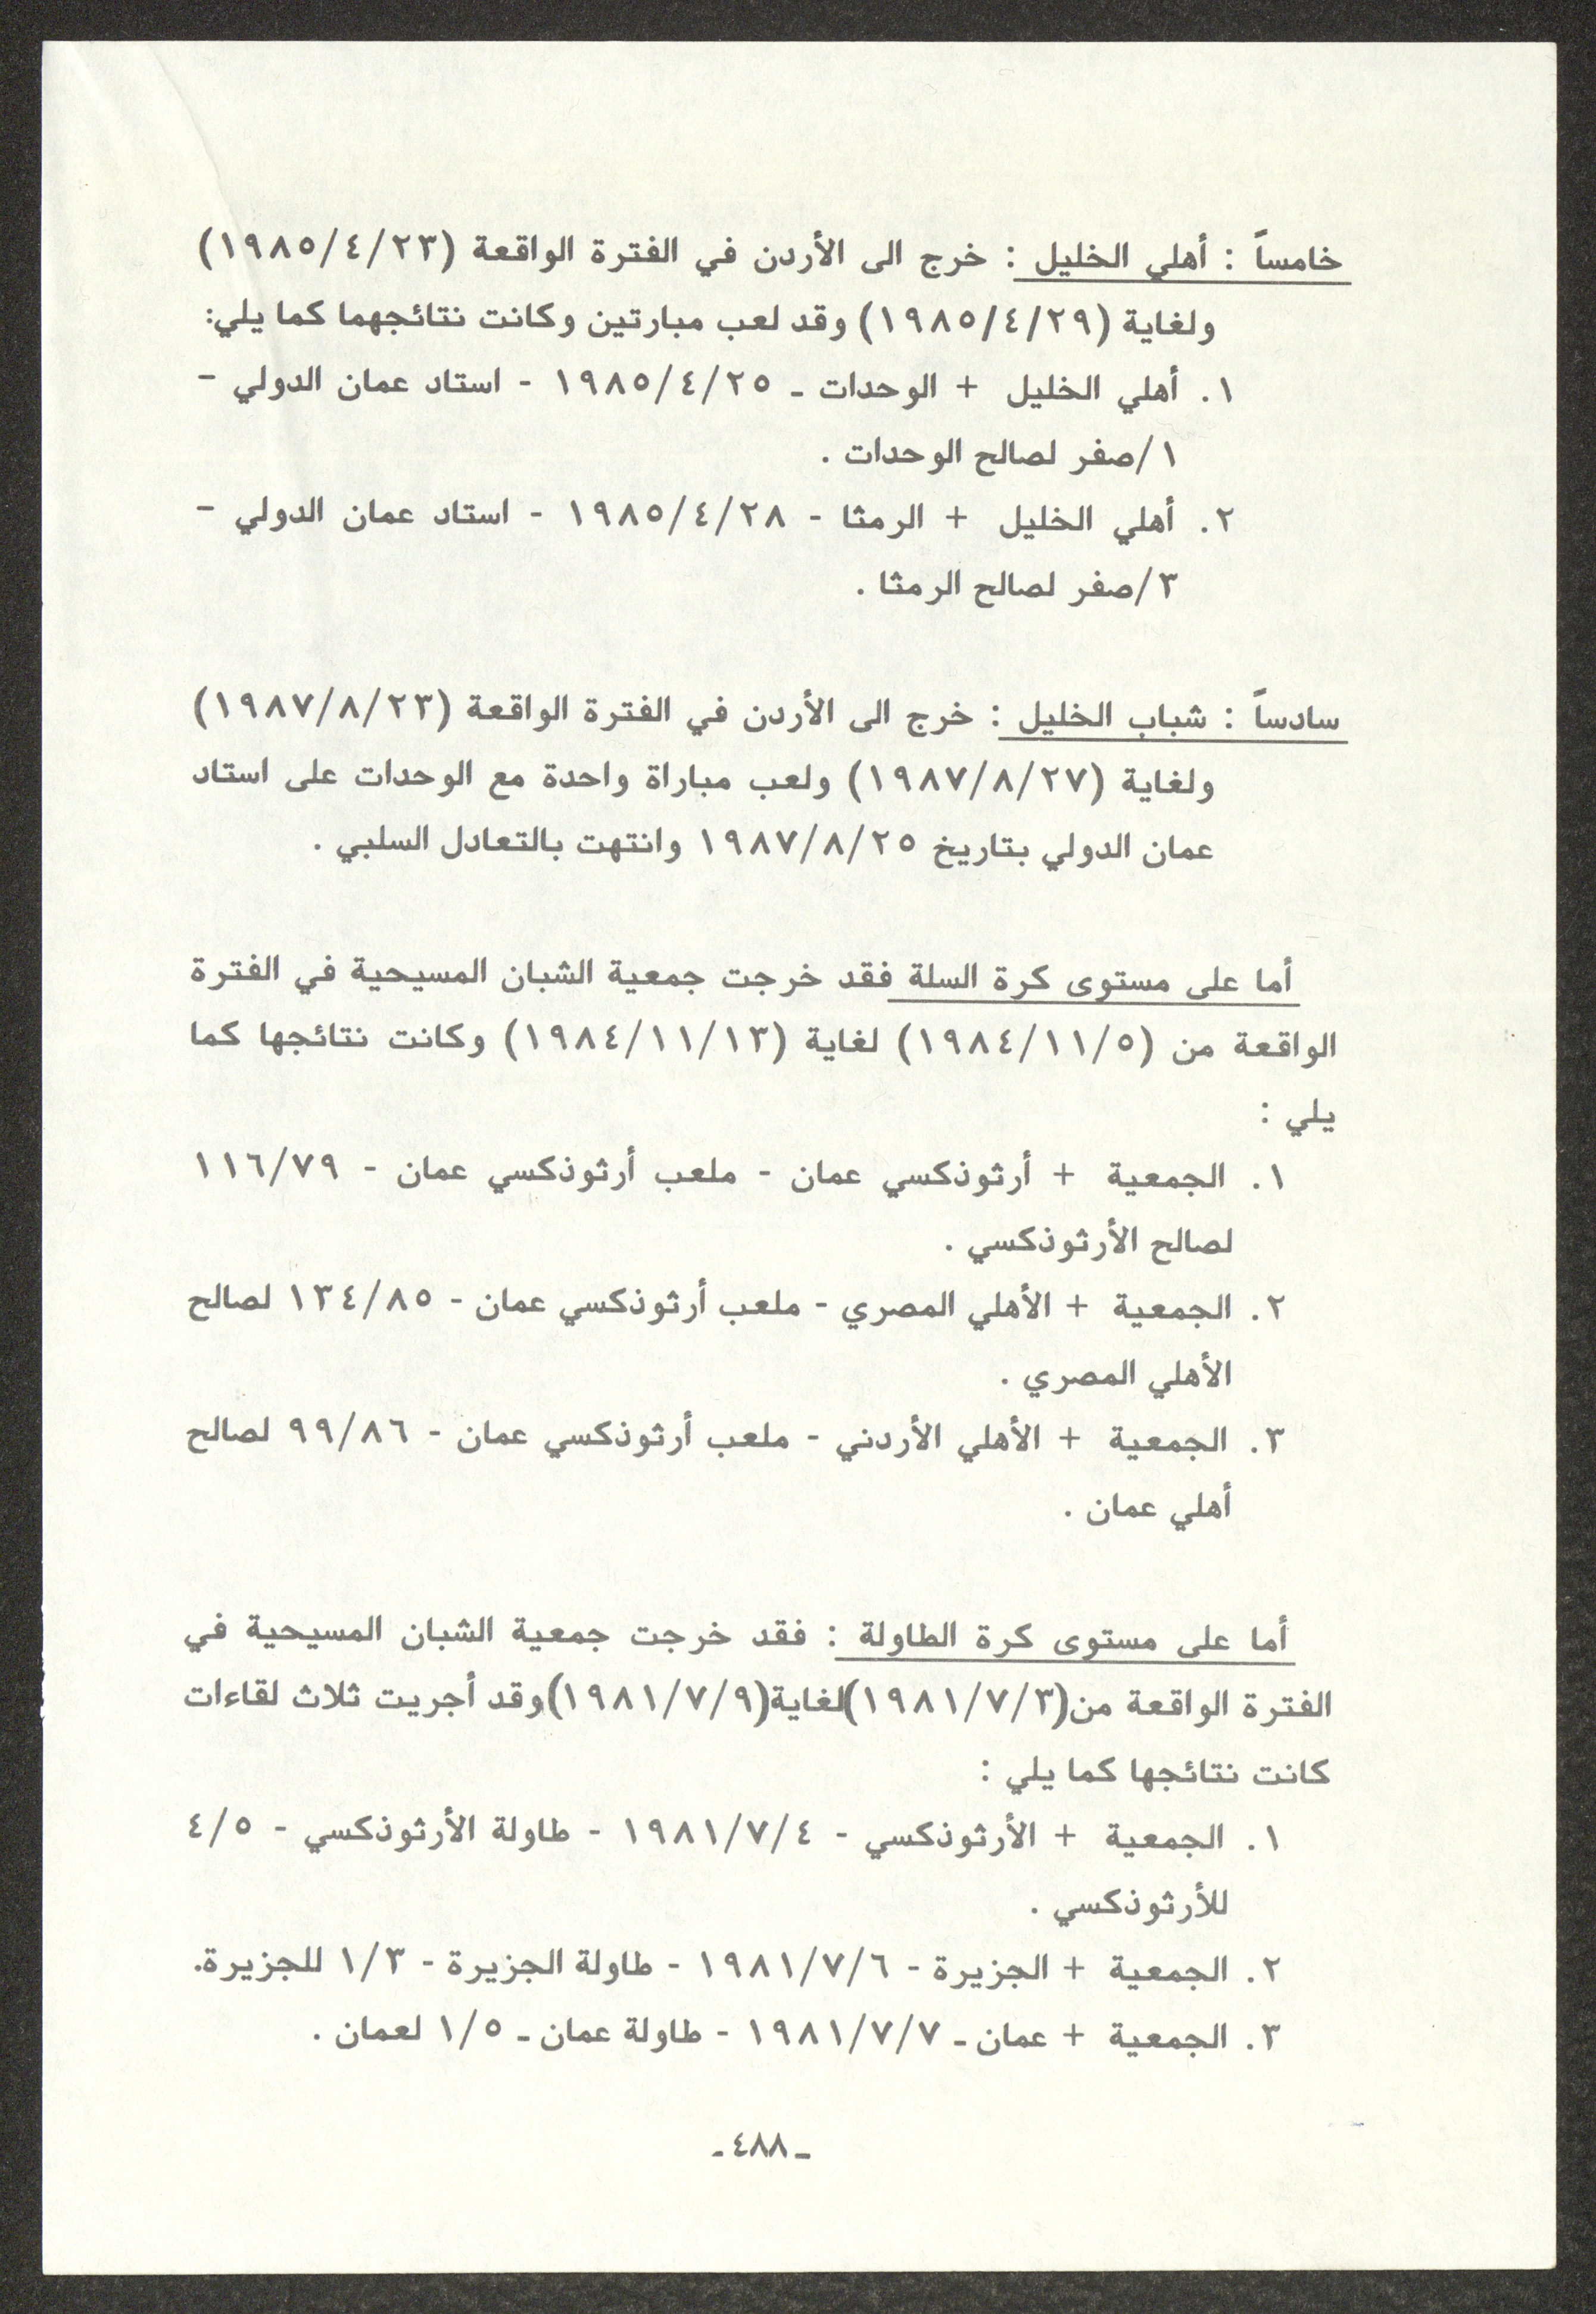 خامساً : أهلي الخليل : خرج الى الأردن في الفترة الواقعة (١٩٨٥/٤/٢٣)
ولغاية (١٩٨٥/٤/٢٩) وقد لعب مبارتين وكانت نتائجهما كما يلي:
١. أهلي الخليل + الوحدات ـ ١٩٨٥/٤/٢٥ - استاد عمان الدولي -
١/صفر لصالح الوحدات .
٢. أهلي الخليل + الرمثا - ١٩٨٥/٤/٢٨ - استاد عمان الدولي -
٣/صفر لصالح الرمثا .
سادساً : شباب الخليل : خرج الى الأردن في الفترة الواقعة (١٩٨٧/٨/٢٣)
ولغاية (١٩٨٧/٨/٢٧) ولعب مباراة واحدة مع الوحدات على استاد
عمان الدولي بتاريخ ١٩٨٧/٨/٢٥ وانتهت بالتعادل السلبي .
أما على مستوى كرة السلة فقد خرجت جمعية الشبان المسيحية في الفترة
الواقعة من (١٩٨٤/١١/٥) لغاية (١٩٨٤/١١/١٣) وكانت نتائجها كما
يلي :
١. الجمعية + أرثوذكسي عمان - ملعب أرثوذكسي عمان - ١١٦/٧٩
لصالح الأرثوذكسي .
٢. الجمعية + الأهلي المصري - ملعب أرثوذكسي عمان - ١٣٤/٨٥ لصالح
الأهلي المصري .
٣. الجمعية + الأهلي الأردني - ملعب أرثوذكسي عمان - ٩٩/٨٦ لصالح
أهلي عمان .
أما على مستوى كرة الطاولة : فقد خرجت جمعية الشبان المسيحية في
الفترة الواقعة من(١٩٨١/٧/٣)لغاية(١٩٨١/٧/٩)وقد أجريت ثلاث لقاءات
كانت نتائجها كما يلي :
١. الجمعية + الأرثوذكسي - ١٩٨١/٧/٤ - طاولة الأرثوذكسي - ٤/٥
للأرثوذكسي .
٢. الجمعية + الجزيرة - ١٩٨١/٧/٦ - طاولة الجزيرة - ١/٣ للجزيرة.
٣. الجمعية + عمان ـ ١٩٨١/٧/٧ - طاولة عمان ـ ١/٥ لعمان .
ـ ٤٨٨ ـ